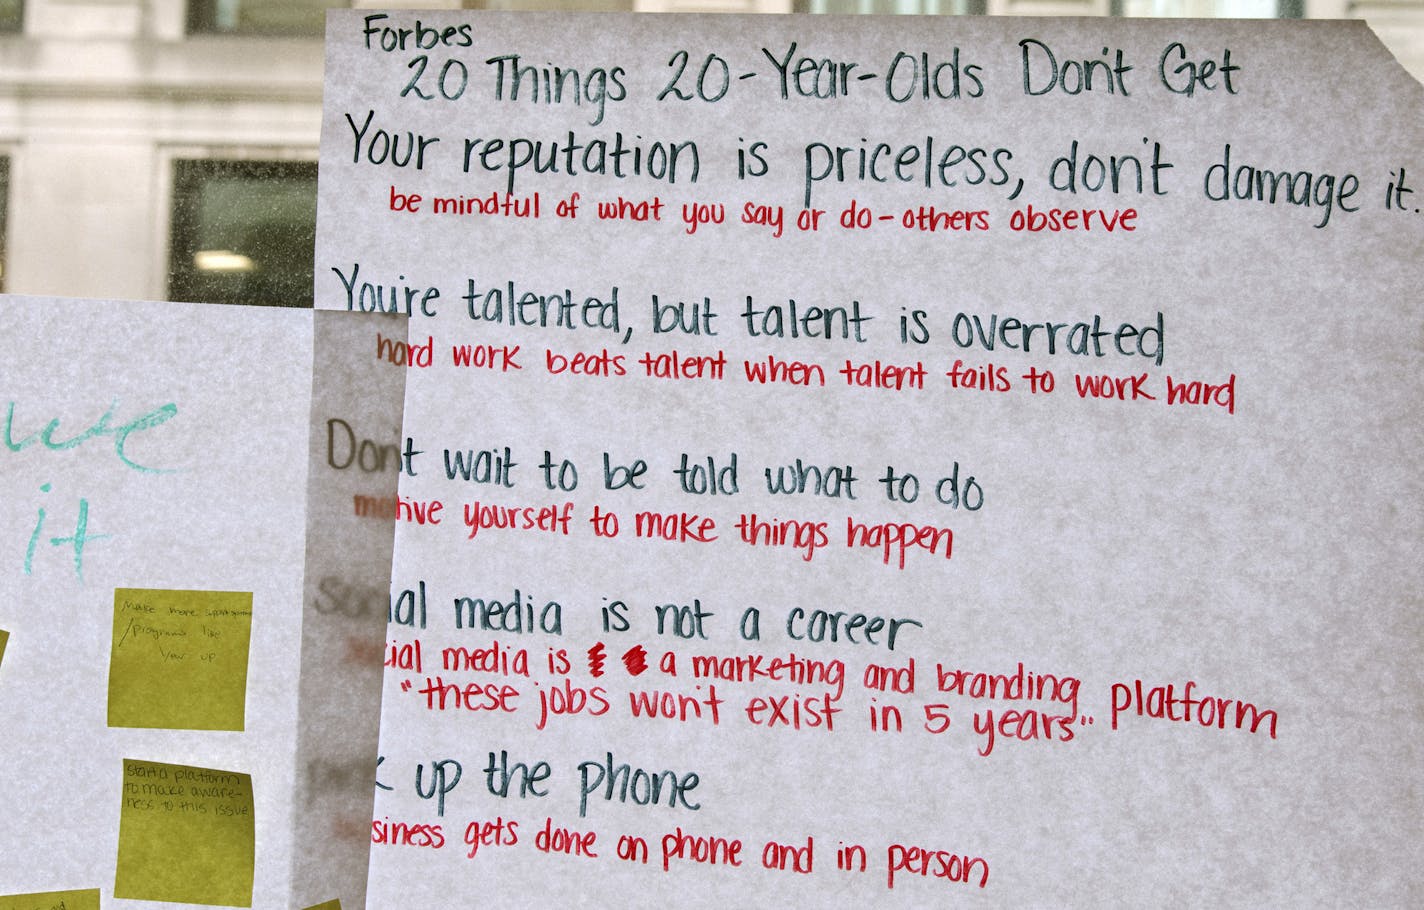 Forbes
20 Things 20-Year-Olds Don't Get
Your reputation is priceless, don't damage it.
be mindful of what you say or do - others observe
You're talented, but talent is overrated
hard work beats talent when talent fails to work hard
Don't wait to be told what to do
motive yourself to make things happen
Social media is not a career
cial media is a marketing and branding platform
"these jobs won't exist in 5 years"
up the phone
siness gets done on phone and in person
we
it
Make more
/programs like
Year up
start a platform
to make aware-
ness to this issue
and